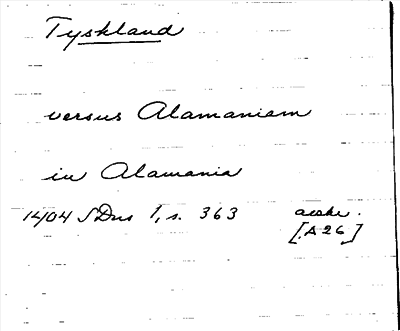 Tyskland
versus Alamaniam
in Alamania
1404 SDns 1, s. 363 avskr.
[A 26]